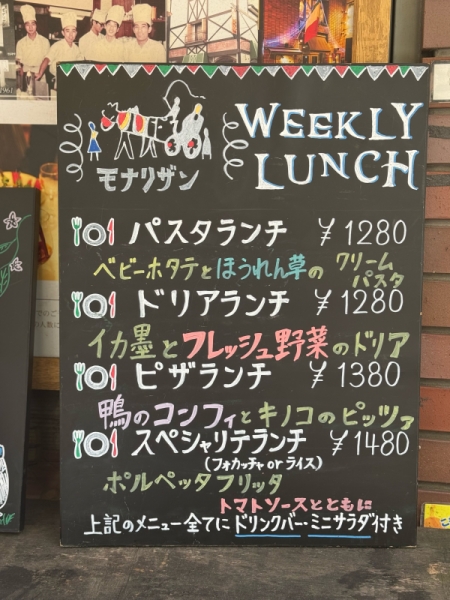 WEEKLY
LUNCH
モナリザン
パスタランチ ¥1280
ベビーホタテとほうれん草のクリームパスタ
ドリアランチ ¥1280
イカ墨とフレッシュ野菜のドリア
ピザランチ ¥1380
鴨のコンフィとキノコのピッツァ
スペシャリテランチ ¥1480
(フォカッチャorライス)
ポルペッタフリッタ
トマトソースとともに
上記のメニュー全てにドリンクバー・ミニサラダ付き